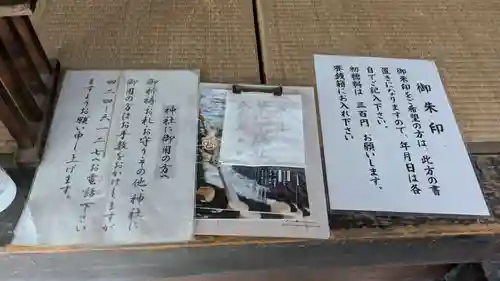 御朱印
御朱印をご希望の方は 此方の書
置きになりますので、年月日は各
自でご記入下さい。
初穂料は 三百円 お願いします。
賽銭箱にお入れ下さい
神社に御用の方へ
御祈祷お札お守りその他 神社に
御用の方はお手数をおかけしますが
四二-六一二七へお電話下さい
ますようお願い申し上げます。